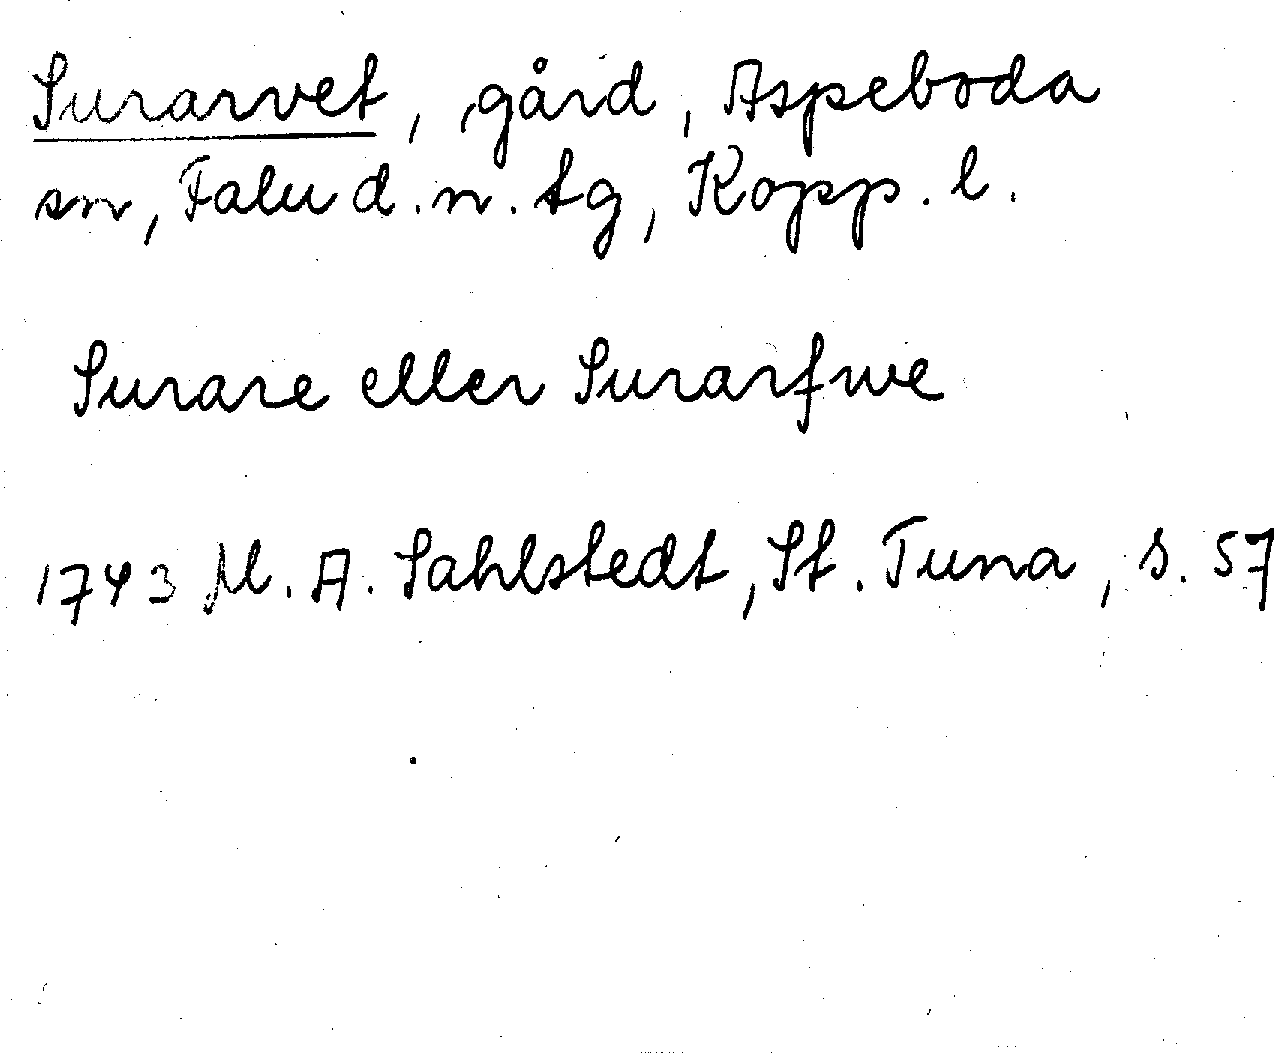 Surarvet, gård, Aspeboda
sn, Falu d. n. tg, Kopp. l.
Surare eller Surarfwe
1743 M. A. Sahlstedt, St. Tuna, s. 57